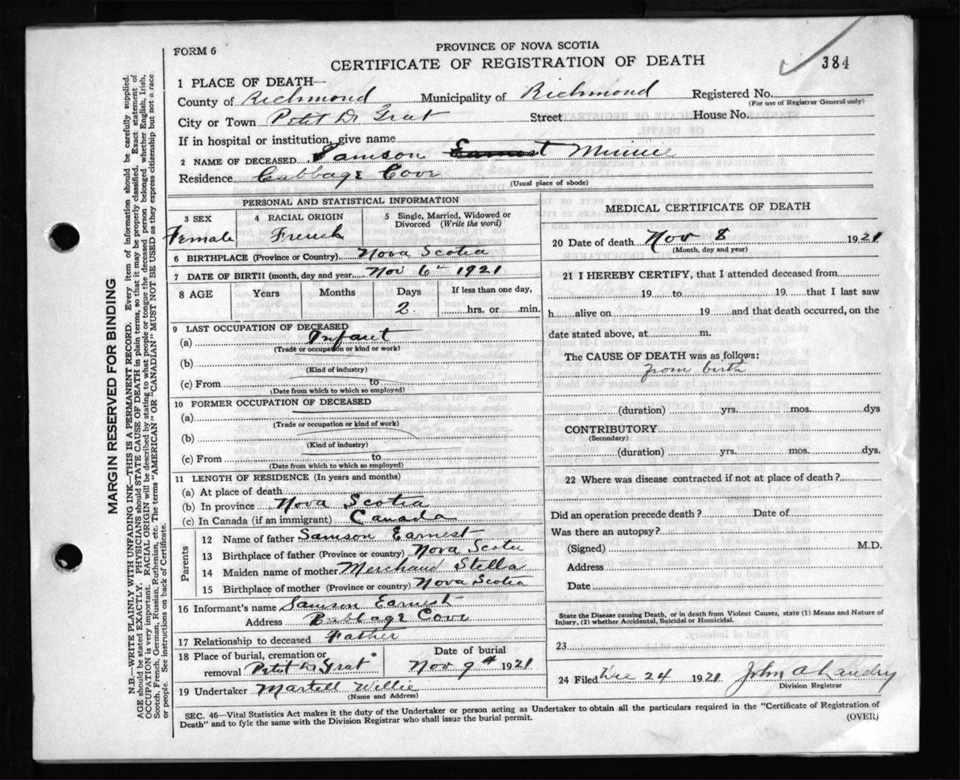 FORM 6
PROVINCE OF NOVA SCOTIA
CERTIFICATE OF REGISTRATION OF DEATH
384
1 PLACE OF DEATH—
County of Richmond Municipality of Richmond Registered No.
(For use of Registrar General only)
City or Town Petit D Grat Street House No.
If in hospital or institution, give name
2 NAME OF DECEASED Samson Earnest Minnie
Residence Cabbage Cove
(Usual place of abode)
PERSONAL AND STATISTICAL INFORMATION
3 SEX 4 RACIAL ORIGIN 5 Single, Married, Widowed or Divorced (Write the word)
Female French
6 BIRTHPLACE (Province or Country) Nova Scotia
7 DATE OF BIRTH (month, day and year) Nov 6th 1921
8 AGE Years Months Days If less than one day,
2 hrs. or min.
9 LAST OCCUPATION OF DECEASED
(a) Infant
(Trade or occupation or kind of work)
(b)
(Kind of industry)
(c) From to
(Date from which to which so employed)
10 FORMER OCCUPATION OF DECEASED
(a)
(Trade or occupation or kind of work)
(b)
(Kind of industry)
(c) From to
(Date from which to which so employed)
11 LENGTH OF RESIDENCE (In years and months)
(a) At place of death
(b) In province Nova Scotia
(c) In Canada (if an immigrant) Canada
Parents
12 Name of father Samson Earnest
13 Birthplace of father (Province or country) Nova Scotia
14 Maiden name of mother Merchand Stella
15 Birthplace of mother (Province or country) Nova Scotia
16 Informant's name Samson Earnist
Address Cabbage Cove
17 Relationship to deceased Father
18 Place of burial, cremation or removal Petit D Grat Date of burial Nov 9th 1921
19 Undertaker Martell Willie
(Name and Address)
MEDICAL CERTIFICATE OF DEATH
20 Date of death Nov 8 1921
(Month, day and year)
21 I HEREBY CERTIFY, that I attended deceased from
19 to 19 that I last saw
h alive on 19 and that death occurred, on the
date stated above, at m.
The CAUSE OF DEATH was as follows:
from birth
(duration) yrs. mos. dys
CONTRIBUTORY
(Secondary)
(duration) yrs. mos. dys.
22 Where was disease contracted if not at place of death?
Did an operation precede death? Date of
Was there an autopsy?
(Signed) M.D.
Address
Date
State the Disease causing Death, or in death from Violent Causes, state (1) Means and Nature of
Injury, (2) whether Accidental, Suicidal or Homicidal.
23
24 Filed Dec 24 1921 John A Landry
Division Registrar
SEC. 46—Vital Statistics Act makes it the duty of the Undertaker or person acting as Undertaker to obtain all the particulars required in the "Certificate of Registration of
Death" and to fyle the same with the Division Registrar who shall issue the burial permit.
(OVER)
MARGIN RESERVED FOR BINDING
N.B.—WRITE PLAINLY WITH UNFADING INK—THIS IS A PERMANENT RECORD. Every item of information should be carefully supplied.
AGE should be stated EXACTLY. PHYSICIANS should STATE CAUSE OF DEATH in plain terms, so that it may be properly classified. Exact statement of
OCCUPATION is very important. RACIAL ORIGIN will be described by stating to what people or tongue the deceased person belonged whether English, Irish,
Scotch, French, German, Russian, Ruthenian, etc. The terms "AMERICAN" OR "CANADIAN" MUST NOT BE USED as they express citizenship but not a race
or people. See instructions on back of Certificate.